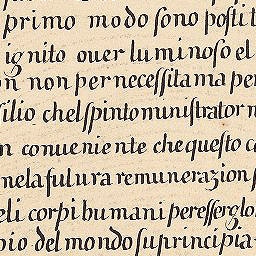 primo modo sono postit
ignito ouer luminoso el
n non per necessita ma per
silio chel spinto ministrator n
n conueniente che questo c
nela futura remunerazion s
eli corpi humani per esser glo
pio del mondo su principia